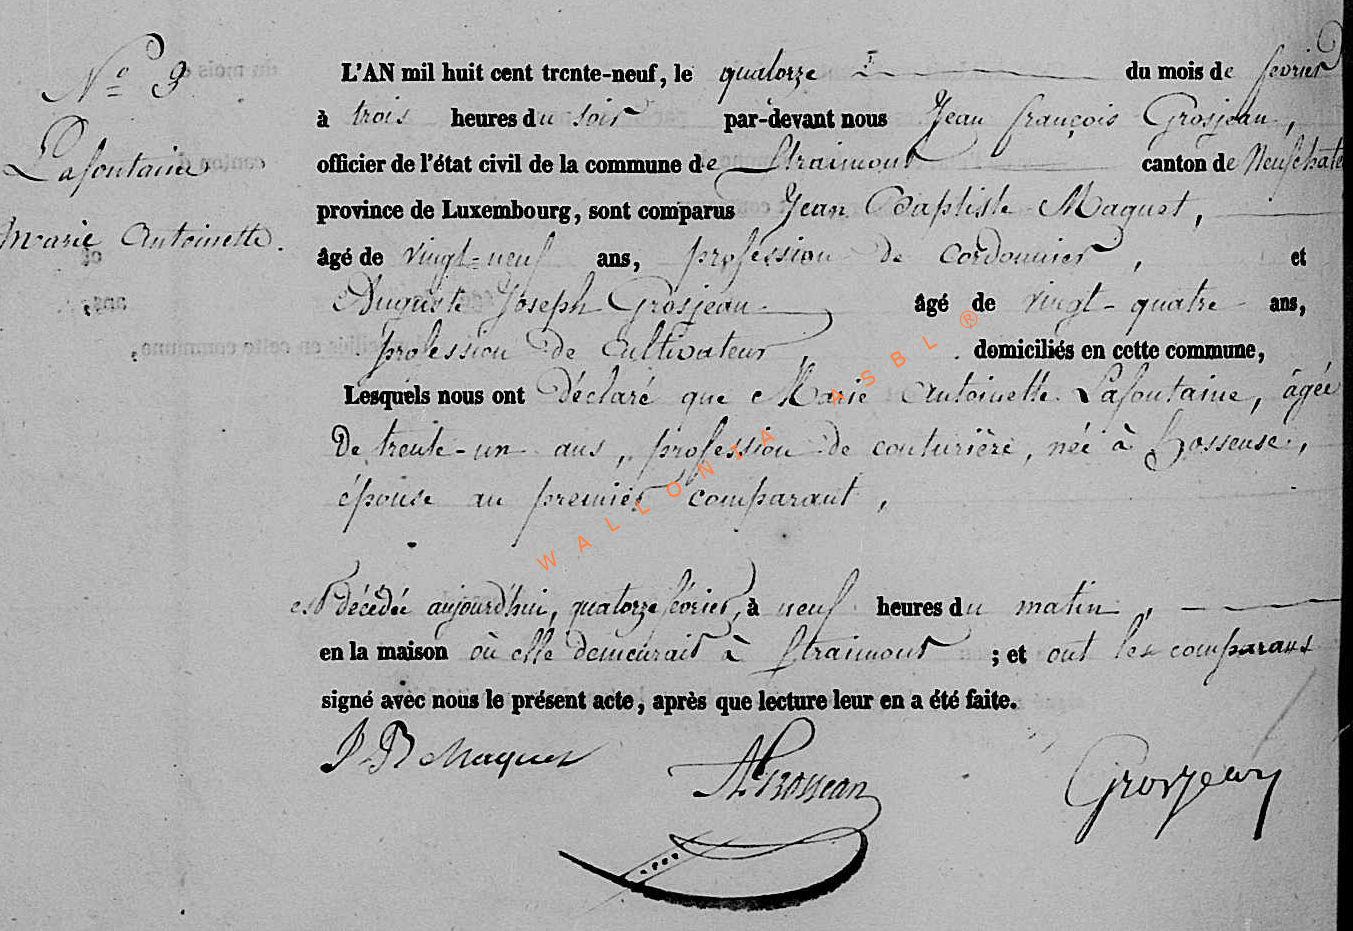 N° 9
Lafontaine
Marie Antoinette.
L'AN mil huit cent trente-neuf, le quatorze du mois de février
à trois heures du soir par-devant nous Jean françois Grosjean,
officier de l'état civil de la commune de Straimont canton de Neufchate
province de Luxembourg, sont comparus Jean Baptiste Maquet,
âgé de vingt-neuf ans, profession de cordonnier, et
Auguste Joseph Grosjean âgé de vingt-quatre ans,
profession de cultivateur, domiciliés en cette commune,
Lesquels nous ont déclaré que Marie Antoinette Lafontaine, âgée
De trente-un ans, profession de couturière, née à Hosseuse,
épouse au premier comparant,
est décédée aujourd'hui, quatorze février, à neuf heures du matin,
en la maison où elle demeurait à Straimont ; et ont les comparans
signé avec nous le présent acte, après que lecture leur en a été faite.
J B Maquet
A Grosjean
Grosjean
WALLONIA ASBL ®